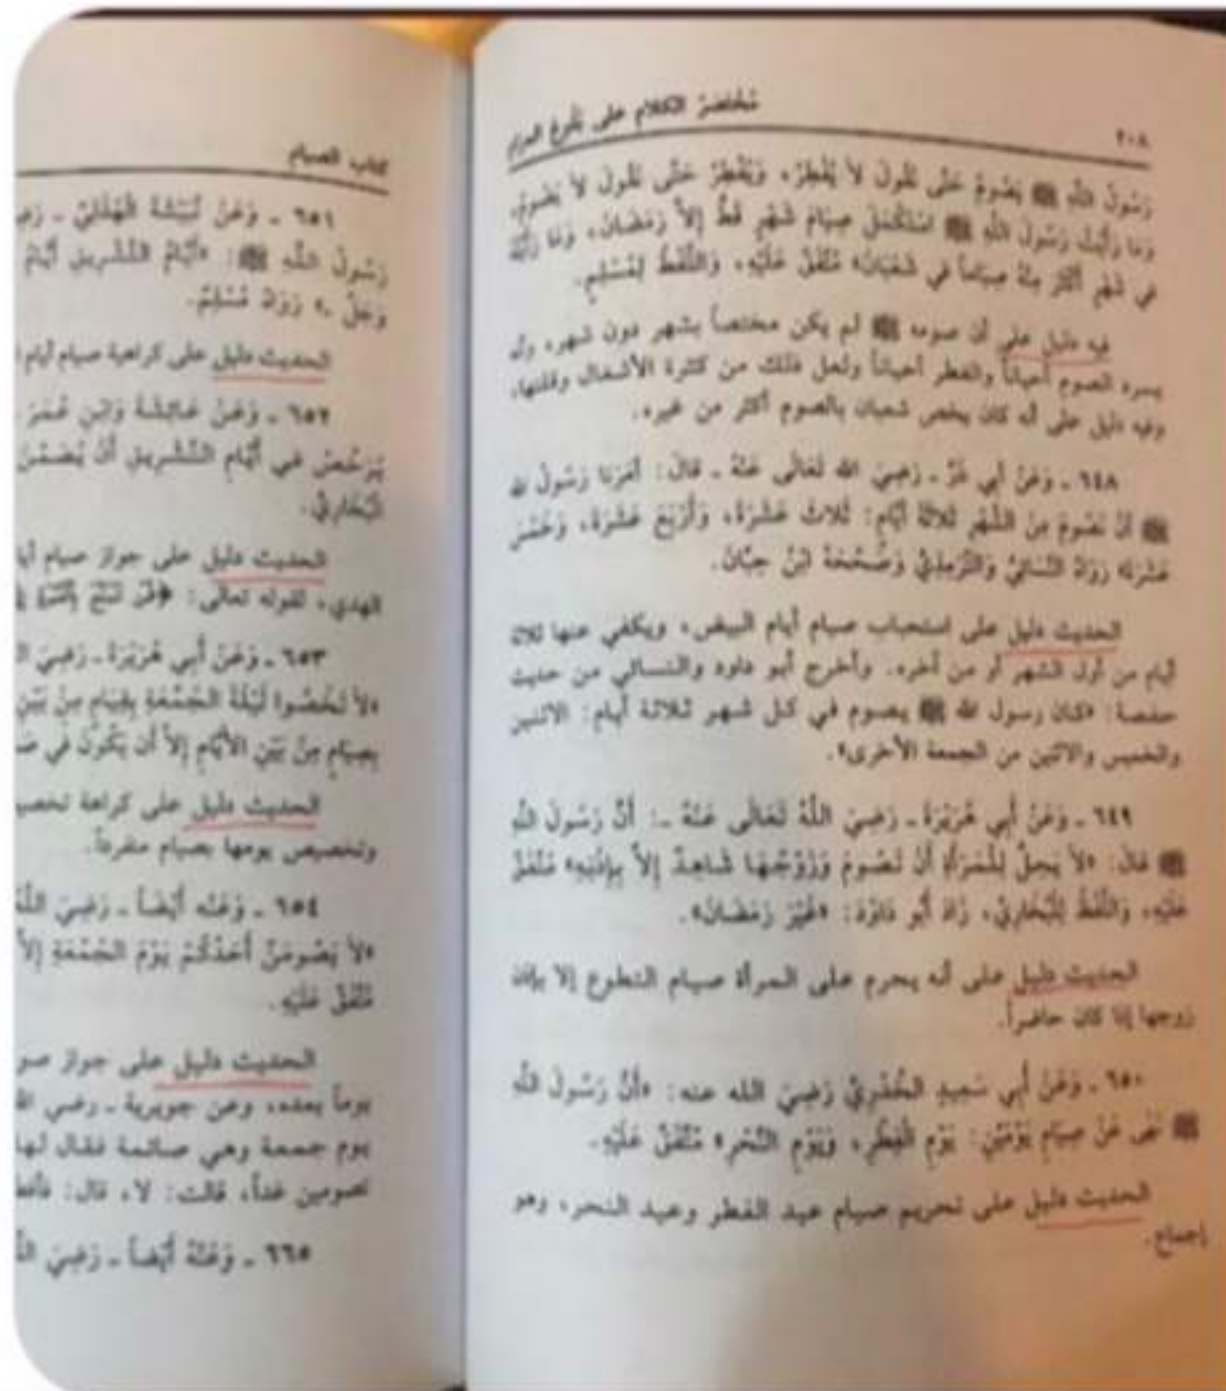 ٢٠٨
مختصر الكلام على بلوغ المرام
رَسُولُ اللَّهِ ﷺ يَصُومُ حَتَّى نَقُولَ لاَ يُفْطِرُ، وَيُفْطِرُ حَتَّى نَقُولَ لاَ يَصُومُ،
وَمَا رَأَيْتُ رَسُولَ اللَّهِ ﷺ اسْتَكْمَلَ صِيَامَ شَهْرٍ قَطُّ إِلاَّ رَمَضَانَ، وَمَا رَأَيْتُهُ
فِي شَهْرٍ أَكْثَرَ مِنْهُ صِيَاماً فِي شَعْبَانَ» مُتَّفَقٌ عَلَيْهِ، وَاللَّفْظُ لِمُسْلِمٍ.
فيه دليل على أن صومه ﷺ لم يكن مختصاً بشهر دون شهر، وأنه
يسره الصوم أحياناً والفطر أحياناً ولعل ذلك من كثرة الأشغال وقلتها،
وفيه دليل على أنه كان يخص شعبان بالصوم أكثر من غيره.
٦٤٨ ـ وَعَنْ أَبِي ذَرٍّ ـ رَضِيَ الله تَعَالَى عَنْهُ ـ قَالَ: أَمَرَنَا رَسُولُ الله
ﷺ أَنْ نَصُومَ مِنَ الشَّهْرِ ثَلاَثَةَ أَيَّامٍ: ثَلاَثَ عَشْرَةَ، وَأَرْبَعَ عَشْرَةَ، وَخَمْسَ
عَشْرَةَ» رَوَاهُ النَّسَائِيُّ وَالتِّرْمِذِيُّ وَصَحَّحَهُ ابْنُ حِبَّانَ.
الحديث دليل على استحباب صيام أيام البيض، ويكفي عنها ثلاثة
أيام من أول الشهر أو من آخره. وأخرج أبو داود والنسائي من حديث
حفصة: «كان رسول الله ﷺ يصوم في كل شهر ثلاثة أيام: الاثنين
والخميس والاثنين من الجمعة الأخرى».
٦٤٩ ـ وَعَنْ أَبِي هُرَيْرَةَ ـ رَضِيَ اللَّهُ تَعَالَى عَنْهُ ـ: أَنَّ رَسُولَ اللَّهِ
ﷺ قَالَ: «لاَ يَحِلُّ لِلْمَرْأَةِ أَنْ تَصُومَ وَزَوْجُهَا شَاهِدٌ إِلاَّ بِإِذْنِهِ» مُتَّفَقٌ
عَلَيْهِ، وَاللَّفْظُ لِلْبُخَارِيِّ، زَادَ أَبُو دَاوُدَ: «غَيْرَ رَمَضَانَ».
الحديث دليل على أنه يحرم على المرأة صيام التطوع إلا بإذن
زوجها إذا كان حاضراً.
٦٥٠ ـ وَعَنْ أَبِي سَعِيدٍ الْخُدْرِيِّ رَضِيَ الله عنه: «أَنَّ رَسُولَ اللَّهِ
ﷺ نَهَى عَنْ صِيَامِ يَوْمَيْنِ: يَوْمِ الْفِطْرِ، وَيَوْمِ النَّحْرِ» مُتَّفَقٌ عَلَيْهِ.
الحديث دليل على تحريم صيام عيد الفطر وعيد النحر، وهو
إجماع.
كتاب الصيام
٦٥١ ـ وَعَنْ نُبَيْشَةَ الْهُذَلِيِّ ـ رَضِيَ
رَسُولُ اللَّهِ ﷺ: «أَيَّامُ التَّشْرِيقِ أَيَّامُ
وَجَلَّ ـ» رَوَاهُ مُسْلِمٌ.
الحديث دليل على كراهية صيام أيام
٦٥٢ ـ وَعَنْ عَائِشَةَ وَابْنِ عُمَرَ
يُرَخَّصْ فِي أَيَّامِ التَّشْرِيقِ أَنْ يُصَمْنَ
الْبُخَارِيُّ.
الحديث دليل على جواز صيام
الهدي، لقوله تعالى: ﴿فَمَن تَمَتَّعَ بِالْعُمْرَةِ
٦٥٣ ـ وَعَنْ أَبِي هُرَيْرَةَ ـ رَضِيَ
«لاَ تَخُصُّوا لَيْلَةَ الْجُمُعَةِ بِقِيَامٍ مِنْ بَيْنِ
بِصِيَامٍ مِنْ بَيْنِ الأَيَّامِ إِلاَّ أَنْ يَكُونَ فِي
الحديث دليل على كراهة
وتخصيص يومها بصيام منفرداً.
٦٥٤ ـ وَعَنْه أَيْضاً ـ رَضِيَ اللَّهُ
«لاَ يَصُومَنَّ أَحَدُكُمْ يَوْمَ الْجُمُعَةِ إِلاَّ
مُتَّفَقٌ عَلَيْهِ.
الحديث دليل على جواز
يوماً بعده، وعن جويرية ـ رضي
يوم جمعة وهي صائمة فقال لها
تصومين غداً، قالت: لا، قال:
٦٦٥ ـ وَعَنْهُ أَيْضاً ـ رَضِيَ